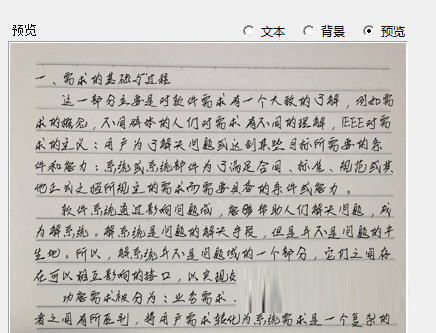 预览
文本 背景 预览
一、需求的基础与过程
这一部分主要是对软件需求有一个大致的了解，例如需
求的概念，不同群体的人们对需求有不同的理解，IEEE对需
求的定义：用户为了解决问题或达到某些目标所需要的条
件和能力；系统或系统部件为了满足合同、标准、规范或其
他正式文档所规定的需求而需要具备的条件或能力。
软件系统通过影响问题域，能够帮助人们解决问题，成
为解系统。解系统是问题的解决手段，但是并不是问题的产
生地。所以，解系统并不是问题域的一个部分，它们之间存
在可以相互影响的接口，以实现
功能需求被分为：业务需求、
者之间有所区别，将用户需求转化为系统需求是一个复杂的